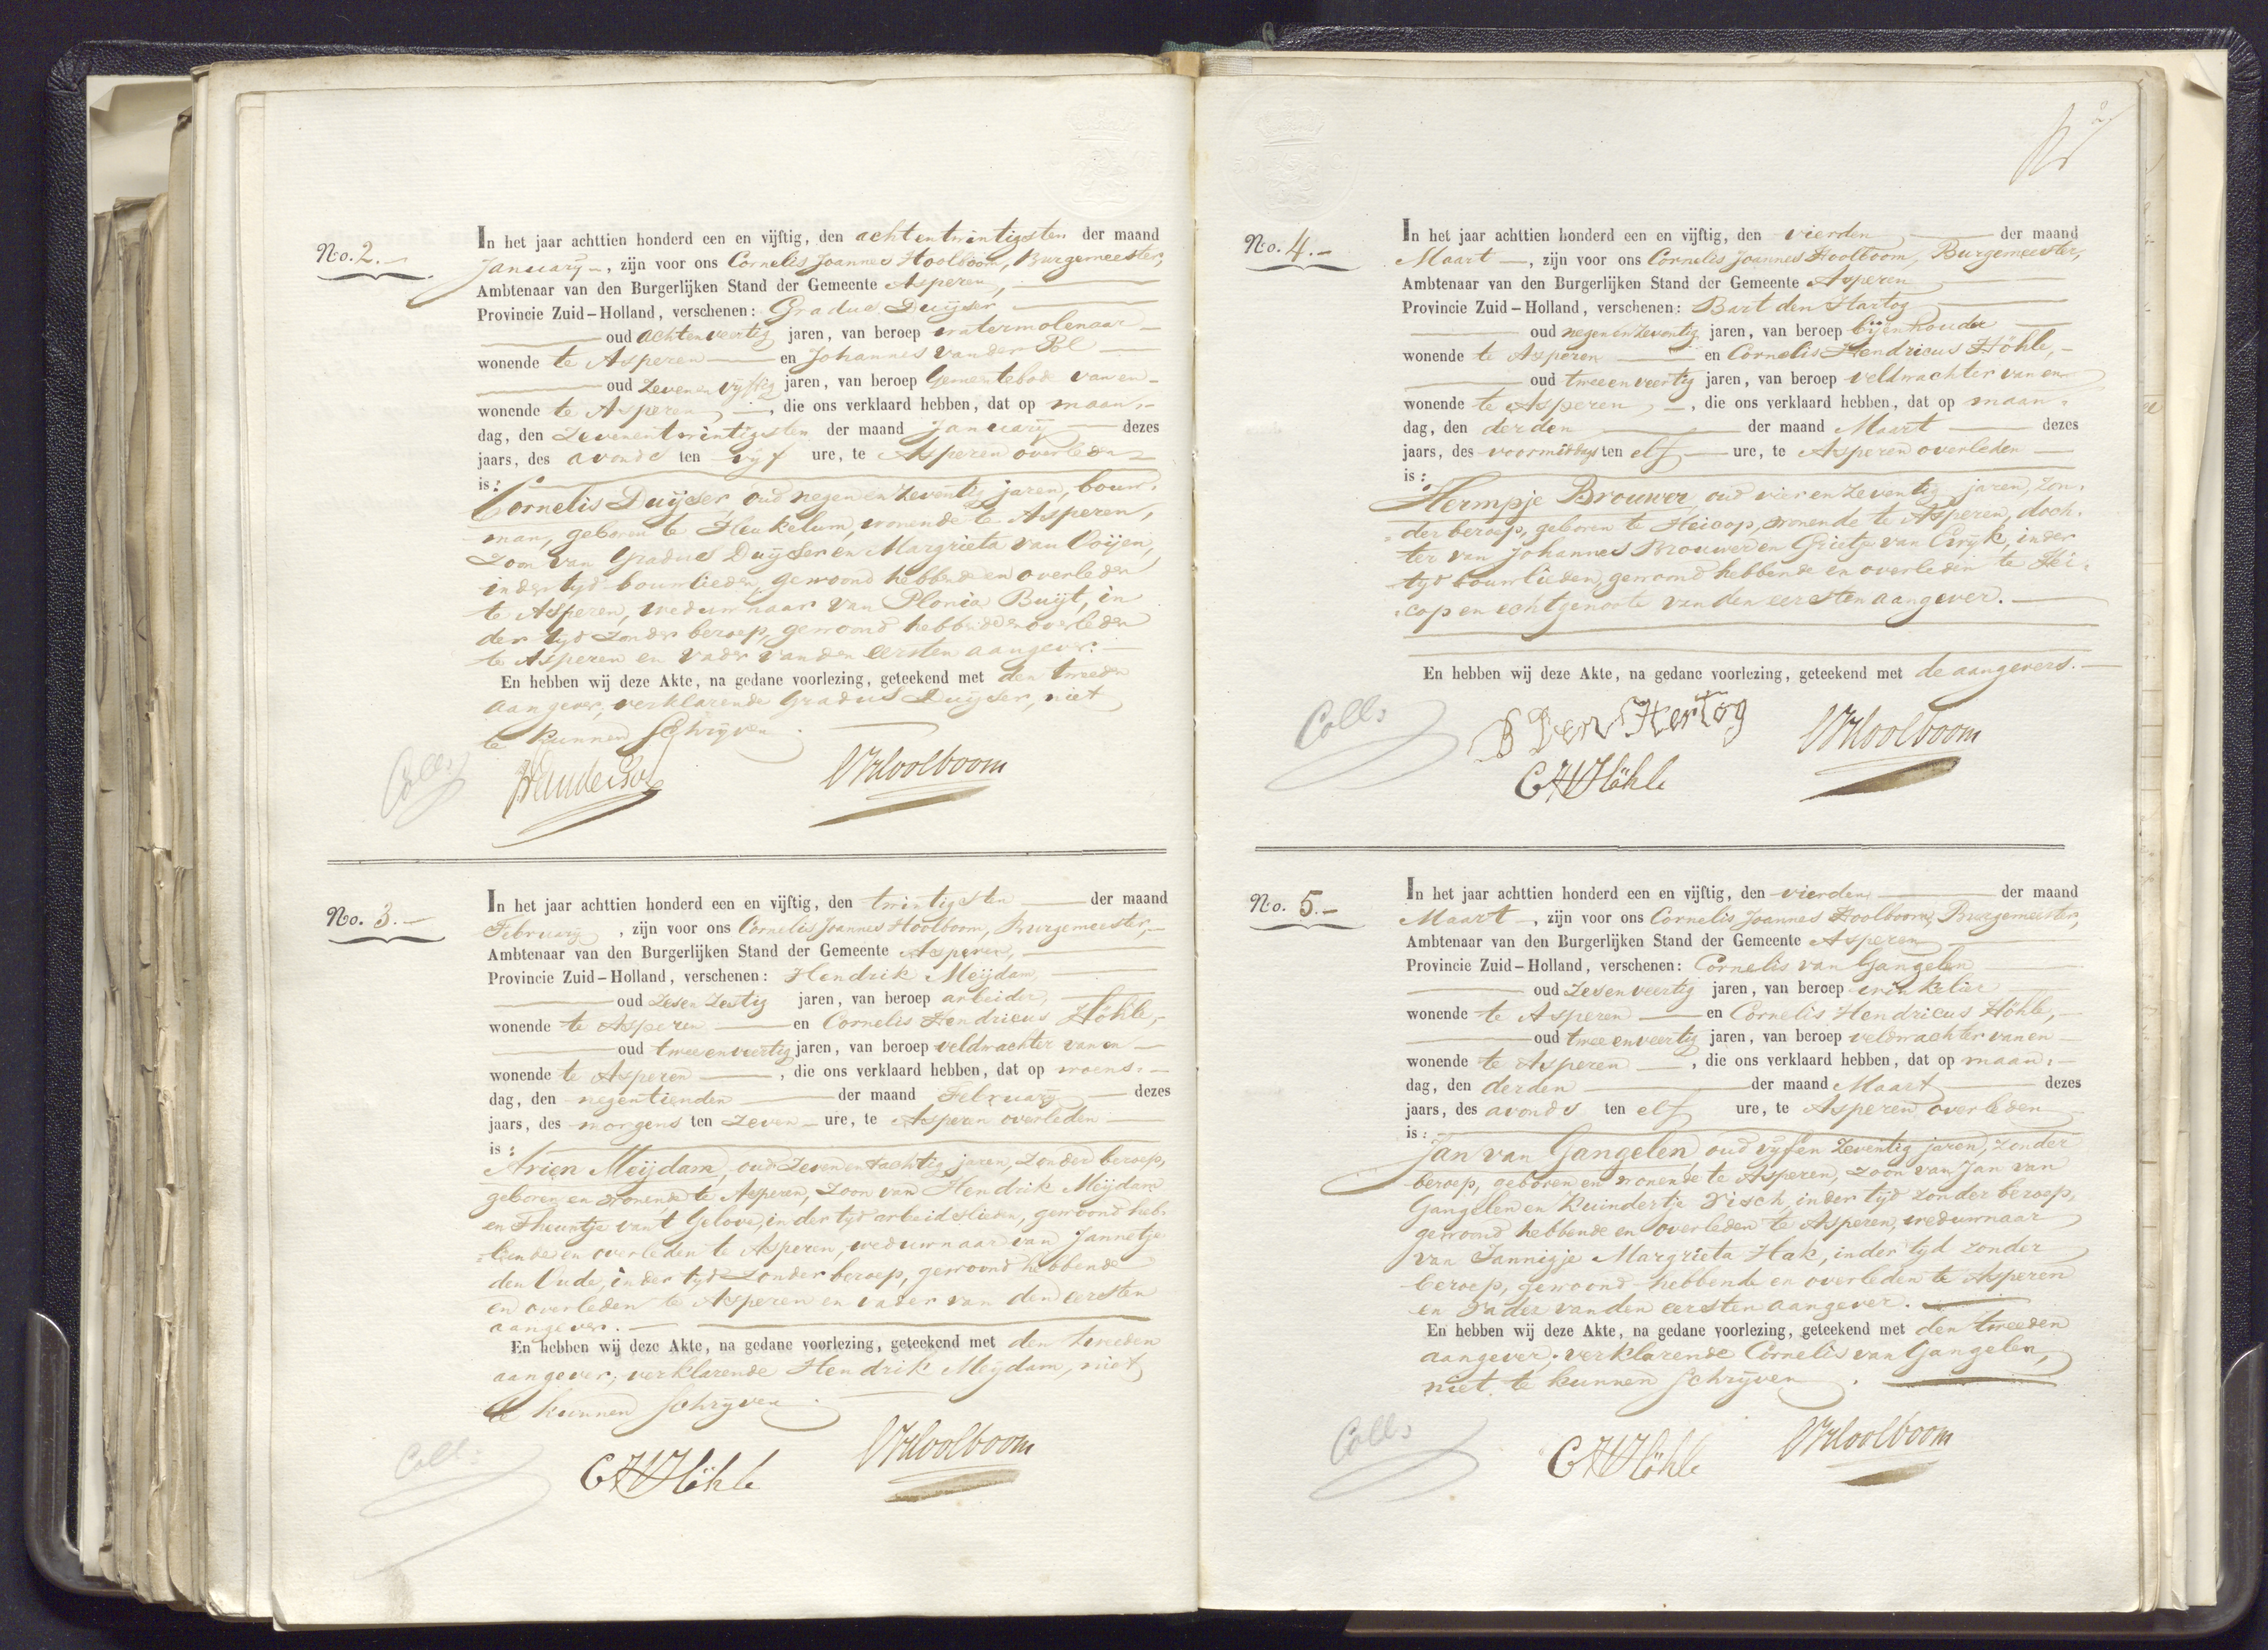 No. 2.-
In het jaar achttien honderd een en vijftig, den achtentwintigsten der maand
January -, zijn voor ons Cornelis Joannes Hoolboom, Burgemeester,
Ambtenaar van den Burgerlijken Stand der Gemeente Asperen,
Provincie Zuid-Holland, verschenen: Gradus Duijser
oud achtenveertig jaren, van beroep watermolenaar
wonende te Asperen en Johannes van der Pol
oud zevenenvyftig jaren, van beroep Gemeentebode van en
wonende te Asperen, die ons verklaard hebben, dat op maan-
dag, den zevenentwintigsten der maand January dezes
jaars, des avonds ten vyf ure, te Asperen overleden
is:
Cornelis Duijser, oud negenenzeventig jaren, bouw-
man, geboren te Heukelum, wonende te Asperen,
zoon van Gradus Duijser en Margrieta van Ooijen,
indertyd bouwlieden, gewoond hebbende en overleden
te Asperen, weduwnaar van Plonia Buijt, in
der tyd zonder beroep, gewoond hebbende en overleden
te Asperen en vader van den eersten aangever.
En hebben wij deze Akte, na gedane voorlezing, geteekend met den tweeden
aangever, verklarende Gradus Duijser, niet
te kunnen schryven.
Coll:
Hoolboom
No. 3.-
In het jaar achttien honderd een en vijftig, den twintigsten der maand
February, zijn voor ons Cornelis Joannes Hoolboom, Burgemeester,
Ambtenaar van den Burgerlijken Stand der Gemeente Asperen,
Provincie Zuid-Holland, verschenen: Hendrik Meijdam,
oud zesenzestig jaren, van beroep arbeider,
wonende te Asperen en Cornelis Hendricus Höhle,
oud tweeenveertig jaren, van beroep veldwachter van en
wonende te Asperen, die ons verklaard hebben, dat op woens-
dag, den negentienden der maand February dezes
jaars, des morgens ten zeven ure, te Asperen overleden
is:
Arien Meijdam, oud zevenentachtig jaren, zonder beroep,
geboren en wonende te Asperen, zoon van Hendrik Meijdam
en Theuntje van't Gelove, in der tyd arbeidslieden, gewoond heb-
bende en overleden te Asperen, weduwnaar van Jannetje
den Oude, in der tyd zonder beroep, gewoond hebbende
en overleden te Asperen en vader van den eersten
aangever.
En hebben wij deze Akte, na gedane voorlezing, geteekend met den tweeden
aangever, verklarende Hendrik Meijdam, niet
te kunnen schryven.
Coll:
CHHöhle
Hoolboom
2
No. 4.-
In het jaar achttien honderd een en vijftig, den vierden der maand
Maart, zijn voor ons Cornelis Joannes Hoolboom, Burgemeester,
Ambtenaar van den Burgerlijken Stand der Gemeente Asperen
Provincie Zuid-Holland, verschenen: Bart den Hartog
oud negenenzeventig jaren, van beroep byenhouder
wonende te Asperen en Cornelis Hendricus Höhle,
oud tweeenveertig jaren, van beroep veldwachter van en
wonende te Asperen, die ons verklaard hebben, dat op maan-
dag, den derden der maand Maart dezes
jaars, des voormiddags ten elf ure, te Asperen overleden
is:
Hermpje Brouwer, oud vierenzeventig jaren, zon-
der beroep, geboren te Heicop, wonende te Asperen, doch-
ter van Johannes Brouwer en Grietje van Eryk, in der
tyd bouwlieden, gewoond hebbende en overleden te Hei-
cop en echtgenoote van den eersten aangever.
En hebben wij deze Akte, na gedane voorlezing, geteekend met de aangevers.
Coll:
B Den Hertog
Hoolboom
CHHöhle
No. 5.-
In het jaar achttien honderd een en vijftig, den vierden der maand
Maart, zijn voor ons Cornelis Joannes Hoolboom, Burgemeester,
Ambtenaar van den Burgerlijken Stand der Gemeente Asperen
Provincie Zuid-Holland, verschenen: Cornelis van Gangelen
oud zesenveertig jaren, van beroep winkelier
wonende te Asperen en Cornelis Hendricus Höhle,
oud tweeenveertig jaren, van beroep veldwachter van en
wonende te Asperen, die ons verklaard hebben, dat op maan-
dag, den derden der maand Maart dezes
jaars, des avonds ten elf ure, te Asperen overleden
is:
Jan van Gangelen, oud vyfenzeventig jaren, zonder
beroep, geboren en wonende te Asperen, zoon van Jan van
Gangelen en Kuindertje Visch, inder tyd zonder beroep,
gewoond hebbende en overleden te Asperen, weduwnaar
van Jannigje Margrieta Hak, inder tyd zonder
beroep, gewoond hebbende en overleden te Asperen
en vader van den eersten aangever.
En hebben wij deze Akte, na gedane voorlezing, geteekend met den tweeden
aangever, verklarende Cornelis van Gangelen,
niet te kunnen schryven.
Coll:
CHHöhle
Hoolboom